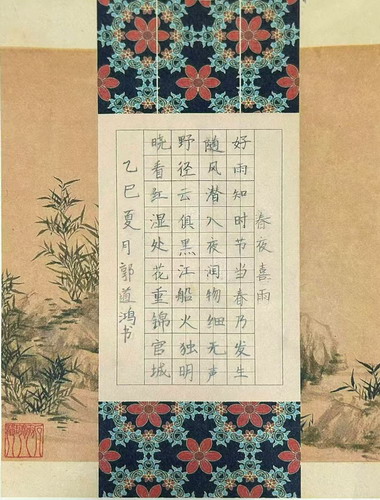 春夜喜雨
好雨知时节当春乃发生
随风潜入夜润物细无声
野径云俱黑江船火独明
晓看红湿处花重锦官城
乙巳夏月郭鸿书